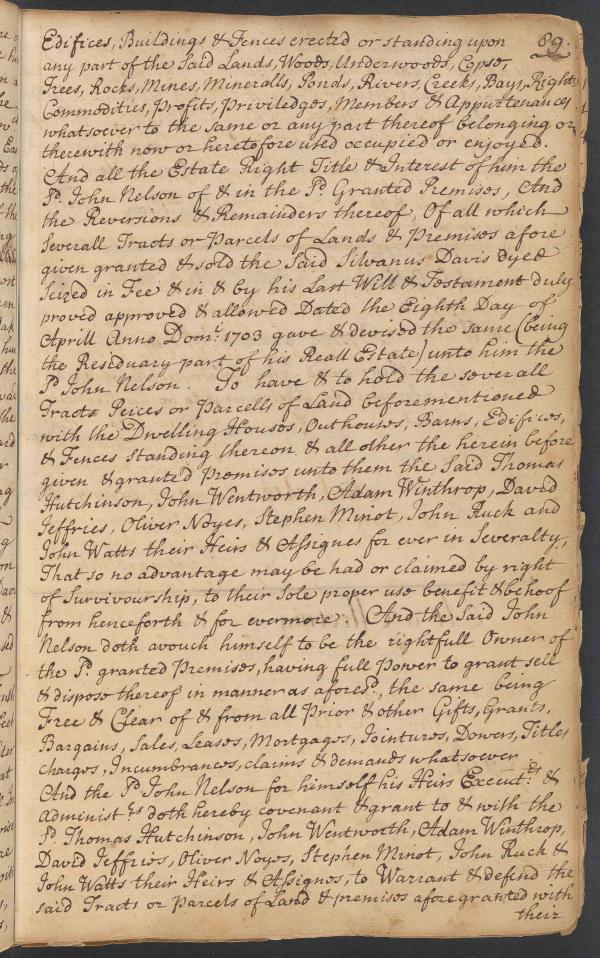 89.
Edifices, Buildings & Fences erected or standing upon
any part of the Said Lands, Woods, Underwoods, Copse,
Trees, Rocks, Mines, Mineralls, Ponds, Rivers, Creeks, Bays, Rights
Commodities, Profits, Priviledges, Members & Appurtenances
whatsoever to the same or any part thereof belonging or,
therewith now or heretofore used occupied or enjoyed.
And all the Estate Right Title & Interest of him the
Sd. John Nelson of & in the Sd. Granted Premises, And
the Reversions & Remainders thereof, Of all which
Severall Tracts or Parcels of Lands & Premises afore
given granted & sold the Said Silvanus Davis dyed
Seized in Fee & in & by his Last Will & Testament duly
proved approved & allowed Dated the Eighth Day of
Aprill Anno Dom: 1703 gave & devised the same (being
the Residuary part of his Reall Estate) unto him the
Sd John Nelson. To have & to hold the severall
Tracts Peices or Parcells of Land beforementioned
with the Dwelling Houses, Outhouses, Barns, Edifices,
& Fences Standing thereon & all other the herein before
given & granted Premises unto them the Said Thomas
Hutchinson, John Wentworth, Adam Winthrop, David
Jeffries, Oliver Noyes, Stephen Minot, John Ruck and
John Watts their Heirs & Assignes for ever in Severalty,
That so no advantage may be had or claimed by right
of Survivourship, to their Sole proper use benefit & behoof
from henceforth & for evermore. And the Said John
Nelson doth avouch himself to be the rightfull Owner of
the Sd. granted Premises, having full Power to grant sell
& dispose thereof in manner as aforesd., the same being
Free & Clear of & from all Prior & other Gifts, Grants,
Bargains, Sales, Leases, Mortgages, Jointures, Dowers, Titles
charges, Incumbrances, claims & demands whatsoever
And the Sd John Nelson for himself his Heirs Execut.rs &
Administ.rs doth hereby covenant & grant to & with the
Sd. Thomas Hutchinson, John Wentworth, Adam Winthrop,
David Jeffries, Oliver Noyes, Stephen Minot, John Ruck &
John Watts their Heirs & Assignes, to Warrant & defend the
said Tracts or Parcels of Land & premises afore granted with
their